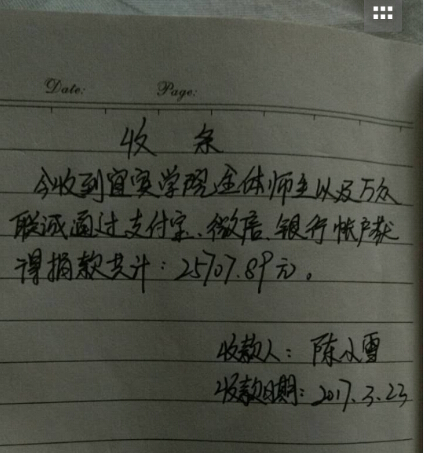 Date: Page:
收条
今收到宜宾学院全体师生以及万众
联诚通过支付宝、微信、银行帐户获
得捐款共计：25707.89元。
收款人：陈小雪
收款日期：2017.3.23